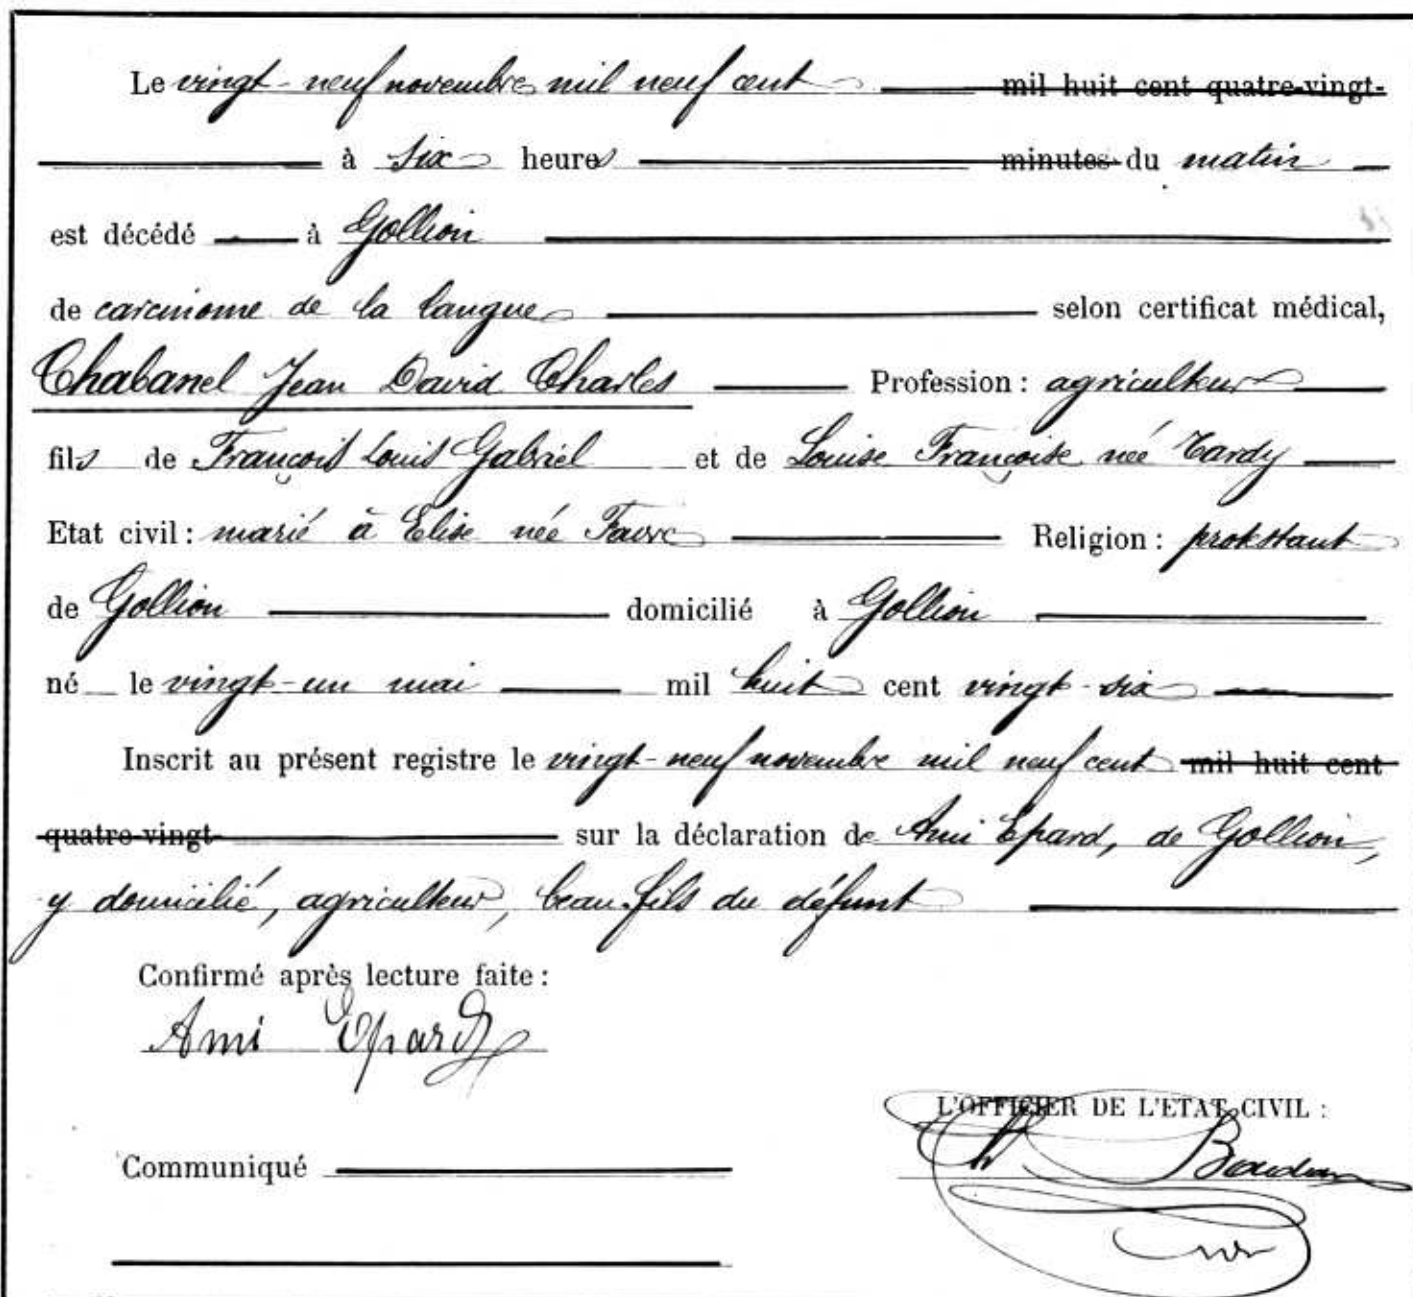 Le vingt-neuf novembre mil neuf cent mil huit cent quatre-vingt-
à six heures minutes du matin
est décédé à Gollion
de carcinome de la langue selon certificat médical,
Chabanel Jean David Charles Profession : agriculteur
fils de François Louis Gabriel et de Louise Françoise née Tardy
Etat civil : marié à Elise née Favre Religion : protestant
de Gollion domicilié à Gollion
né le vingt-un mai mil huit cent vingt-six
Inscrit au présent registre le vingt-neuf novembre mil neuf cent mil huit cent
quatre-vingt- sur la déclaration de Ami Epard, de Gollion,
y domicilié, agriculteur, beau-fils du défunt
Confirmé après lecture faite :
Ami Epard
L'OFFICIER DE L'ETAT CIVIL :
Communiqué